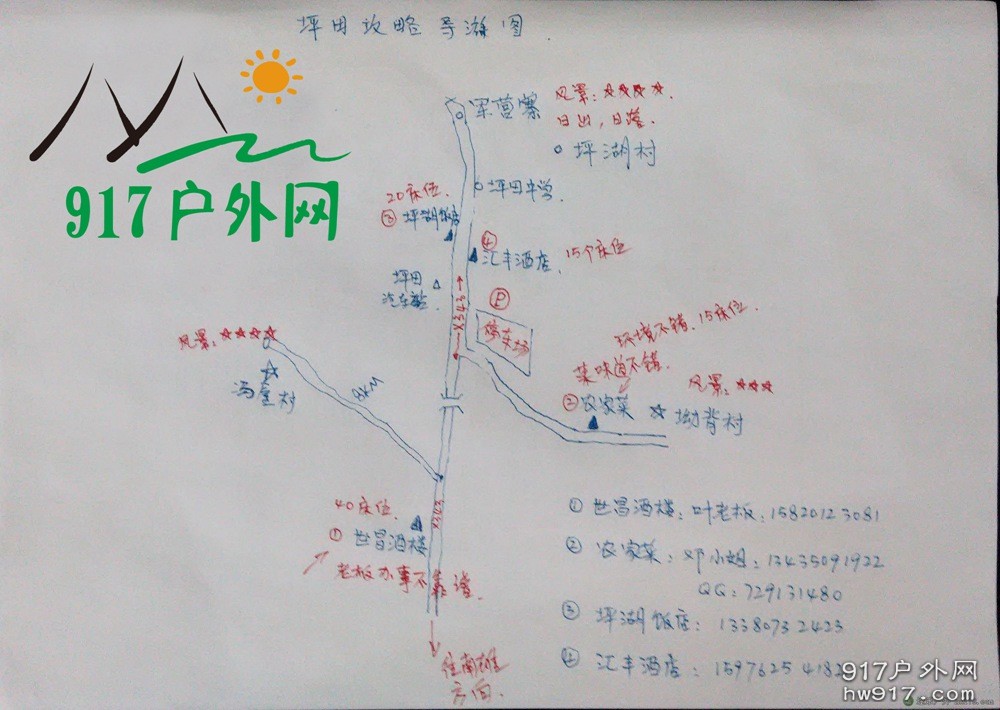 坪田攻略导游图.
917户外网
军营寨
风景:☆☆☆☆.
日出,日落.
坪湖村
坪田中学.
20床位.
③坪湖饭店
④
汇丰酒店.
15个床位
坪田
汽车站.
X343
P
停车场
环境不错.15床位.
菜味道不错.
②农家菜
风景:☆☆☆
坳背村
风景:☆☆☆☆
8KM
40床位.
①世昌酒楼
老板办事不靠谱.
X343
往南雄
方向.
①世昌酒楼:叶老板:15820123081
②农家菜:邓小姐:13435091922
QG:729131480
③坪湖饭店:13380732423
④汇丰酒店:
917户外网
hw917.com